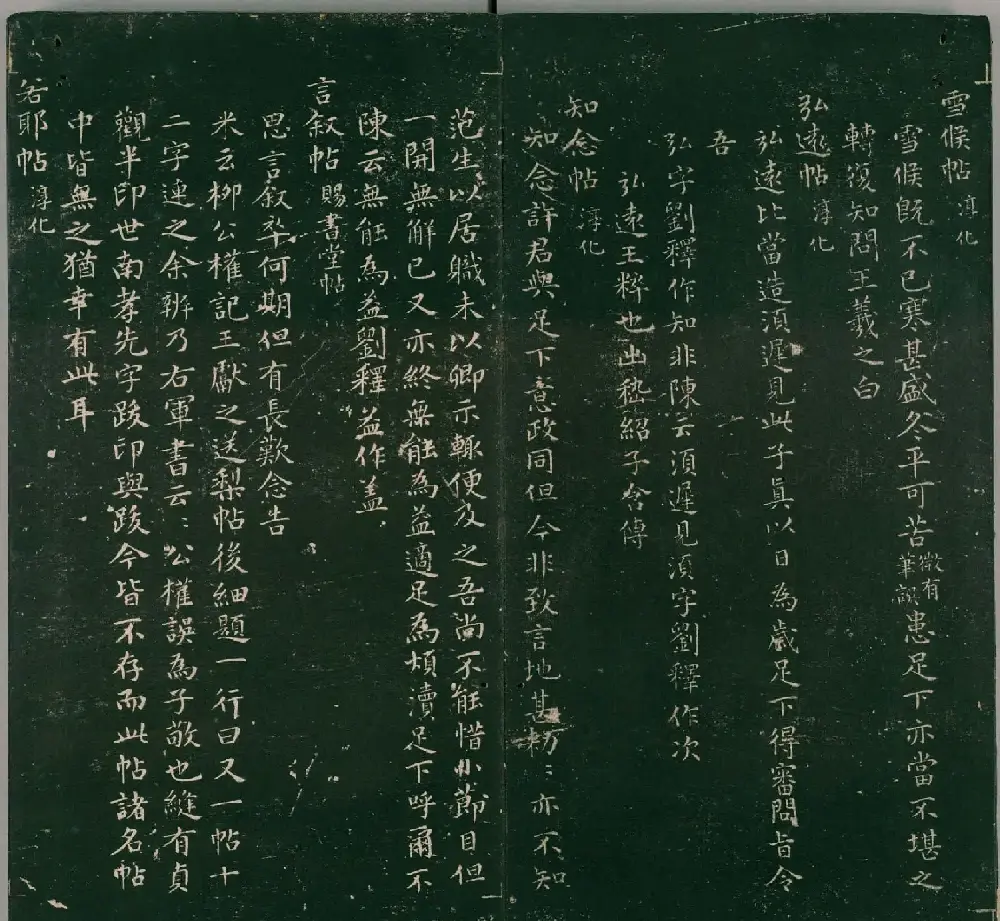 雪候帖 淳化
雪候既不已寒甚盛冬平可苦患足下亦當不堪之
轉復知問王羲之白
弘遠帖 淳化
弘遠比當造須遲見此子真以日為歲足下得審問旨令
吾
弘字劉釋作知非陳云須遲見須字劉釋作次
弘遠王粹也出嵇紹子含傳
知念帖 淳化
知念許君與足下意政同但今非致言地甚勑〻亦不知
范生以居職未以卿示輒便及之吾尚不能惜小節目但
一開無解已又亦終無能為益適足為煩瀆足下呼爾不
陳云無能為益劉釋益作盖
言叙帖 賜書堂帖
思言敘卒何期但有長歎念告
米云柳公權記王獻之送梨帖後細題一行曰又一帖十
二字連之余辨乃右軍書云〻公權誤為子敬也縫有貞
觀半印世南孝先字跋印與跋今皆不存而此帖諸名帖
中皆無之猶幸有此耳
若耶帖 淳化